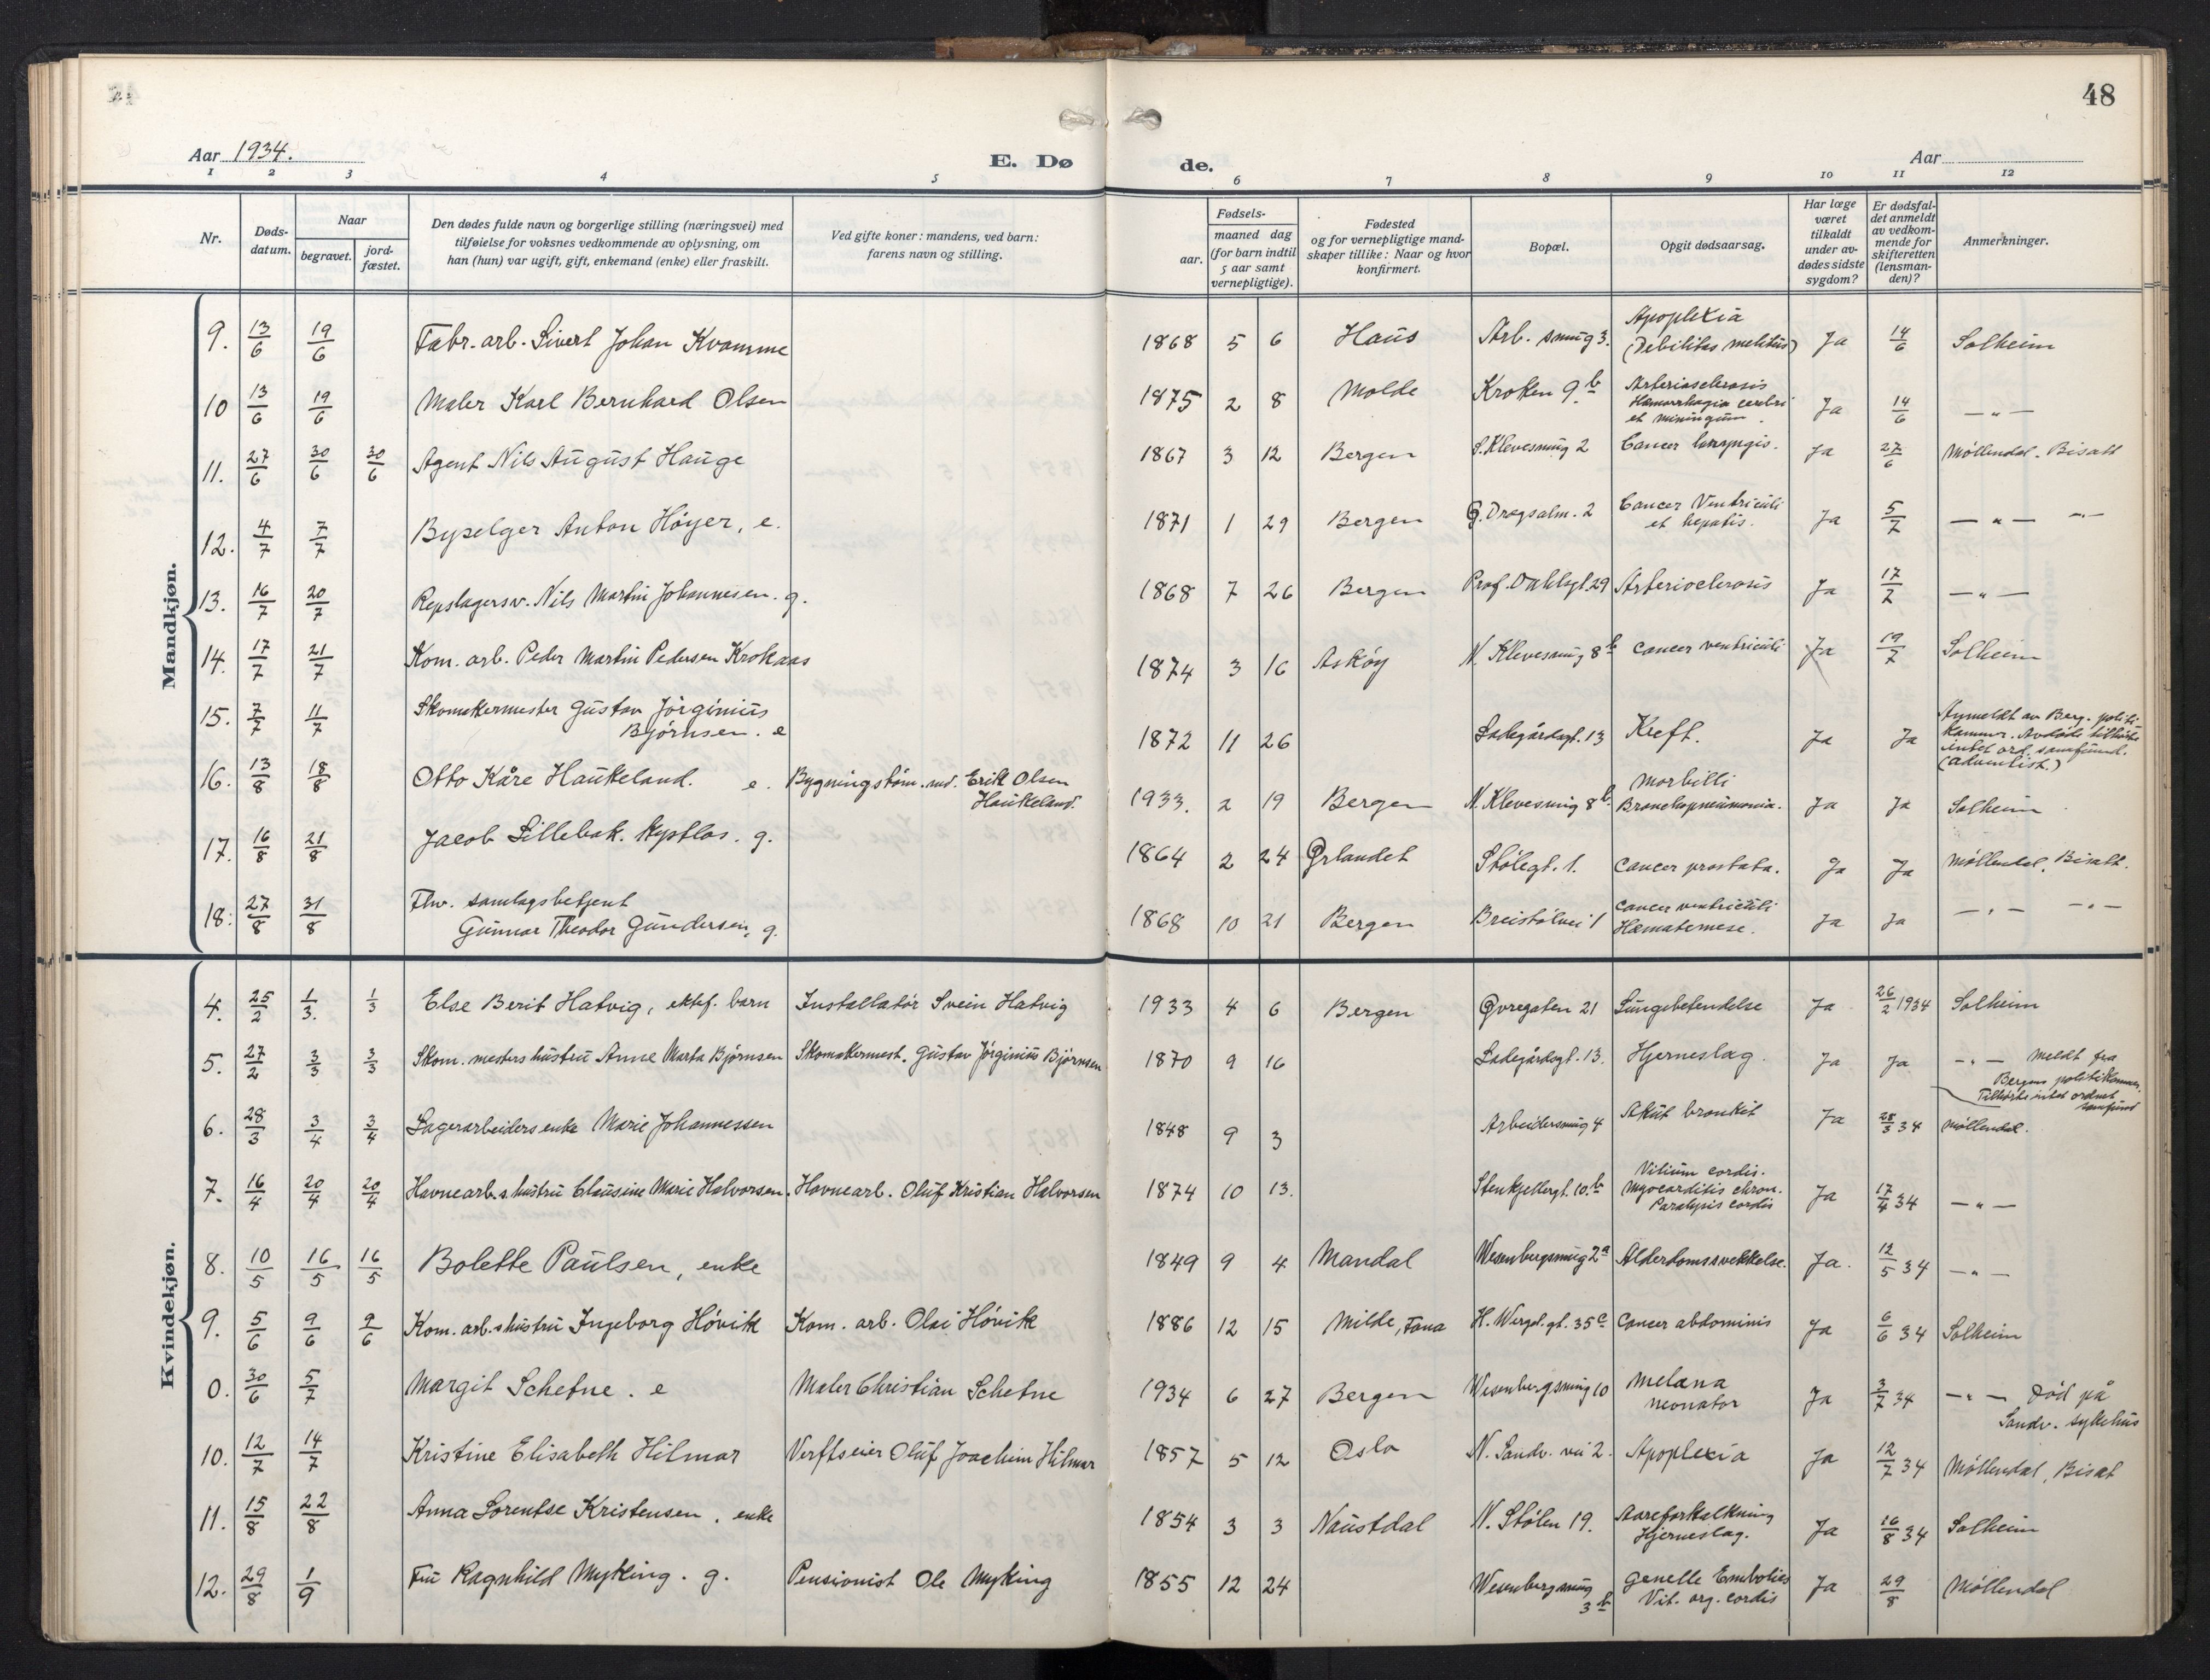 48
Aar 1934.
E. Dø
de.
Aar
1 2 3 4 5 6 7 8 9 10 11 12
Nr.
Døds-
datum.
Naar
begravet.
jord-
fæstet.
Den dødes fulde navn og borgerlige stilling (næringsvei) med
tilføielse for voksnes vedkommende av oplysning, om
han (hun) var ugift, gift, enkemand (enke) eller fraskilt.
Ved gifte koner: mandens, ved barn:
farens navn og stilling.
Fødsels-
aar.
maaned dag
(for barn indtil
5 aar samt
vernepligtige).
Fødested
og for vernepligtige mand-
skaper tillike: Naar og hvor
konfirmert.
Bopæl.
Opgit dødsaarsag.
Har læge
været
tilkaldt
under av-
dødes sidste
sygdom?
Er dødsfal-
det anmeldt
av vedkom-
mende for
skifteretten
(lensman-
den)?
Anmerkninger.
Mandkjøn.
9. 13/6 19/6 Fabr. arb. Sivert Johan Kvamme 1868 5 6 Haus Arb. smug 3. Apoplexia
(Debilitas melitus) Ja 14/6 Solheim
10 13/6 19/6 Maler Karl Bernhard Olsen 1875 2 8 Molde Kroken 9b Arteriosclerosis
Hæmorrhagia cerebri
et miningum. Ja 14/6 — " —
11. 27/6 30/6 30/6 Agent Nils August Hauge 1867 3 12 Bergen S. Klevesmug 2 Cancer laryngis. Ja 27/6 Møllendal. Bisatt
12. 4/7 7/7 Byselger Anton Høyer, e. 1871 1 29 Bergen Ø. Dragsalm. 2 Cancer Ventriculi
et hepatis. Ja 5/7 — " — — " —
13. 16/7 20/7 Repslagersv. Nils Martin Johannesen. g. 1868 7 26 Bergen Prof. Dahlsgt. 29 Arterioclerosis Ja 17/7 — " —
14. 17/7 21/7 Kom. arb. Peder Martin Pedersen Krokaas 1874 3 16 Askøy N. Klevesmug 8b Cancer ventriculi Ja 19/7 Solheim
15. 7/7 11/7 Skomakermester Gustav Jørginius
Bjørnsen. e 1872 11 26 Ladegårdsgt. 13 Kreft. Ja Ja Anmeldt av Berg. politi-
kammer. Avdøde tilhørte
intet ord. samfund.
(adventist.)
16. 13/8 18/8 Otto Kåre Haukeland. e. Bygningstøm. md. Erik Olsen
Haukeland. 1933. 2 19 Bergen N. Klevesmug 8b. Morbilli
Bronchopneumonia. Ja Ja Solheim
17. 16/8 21/8 Jacob Lillebak. g. 1864 2 24 Ørlandet Stølegt. 1. Cancer prostata. Ja Ja Møllendal, Bisatt.
18. 27/8 31/8 Fhv. samlagsbetjent
Gunnar Theodor Gundersen, g. 1868 10 21 Bergen Breistølvei 1 Cancer ventriculi
Hæmatemese. Ja Ja — " — — " —
Kvindekjøn.
4. 25/2 1/3. 1/3 Else Berit Hatvig, ektef. barn Installatør Svein Hatvig 1933 4 6 Bergen Øvregaten 21 Lungebetendelse Ja 26/2 1934 Solheim
5. 27/2 3/3 3/3 Skom. mesters hustru Anne Marta Bjørnsen Skomakermest. Gustav Jørginius Bjørnsen 1870 9 16 Ladegårdsgt. 13. Hjerneslag. Ja Ja — " — Meldt fra
Bergens politikammer.
Tilhørte intet ordnet
samfund
6. 28/3 3/4 3/4 Lagerarbeiders enke Marie Johannessen 1848 9 3 Arbeidersmug 4 Akut bronkit Ja 28/3 34 Møllendal.
7. 16/4 20/4 20/4 Havnearb.s hustru Clausine Marie Halvorsen. Havnearb. Oluf Kristian Halvorsen 1874 10 13. Stenkjellergt. 10.b Vitium cordis.
Myocarditis chron.
Paralysis cordis Ja 17/4 34 — " —
8. 10/5 16/5 16/5 Bolette Paulsen, enke 1849 9 4 Mandal Wesenbergsmug 2a Alderdomssvekkelse. Ja. 12/5 34 — " —
9. 5/6 9/6 9/6 Kom. arb.s hustru Ingeborg Høvik Kom. arb. Olai Høvik 1886 12 15 Milde, Fana H. Wergel. gt. 35c Cancer abdominis Ja 6/6 34 Solheim
0. 30/6 5/7 Margit Schetne. e Maler Christian Schetne 1934 6 27 Bergen Wesenbergsmug 10 Melæna
neonator Ja 3/7 34 — " — Død på
Sandv. sykehus
10. 12/7 14/7 Kristine Elisabeth Hilmar Verftseier Oluf Joachim Hilmar 1857 5 12 Oslo N. Sandv. vei 2. Apoplexia Ja 12/7 34 Møllendal, Bisat
11. 15/8 22/8 Anna Lorentse Kristensen. enke 1854 3 3 Naustdal N. Stølen 19. Aareforkalkning
Hjerneslag. Ja 16/8 34 Solheim
12. 29/8 1/9 Fru Ragnhild Myking. g. Pensionist Ole Myking 1855 12 24 Wesenbergsmug
3b Embolier
Vit. org. cordis Ja 29/8 Møllendal